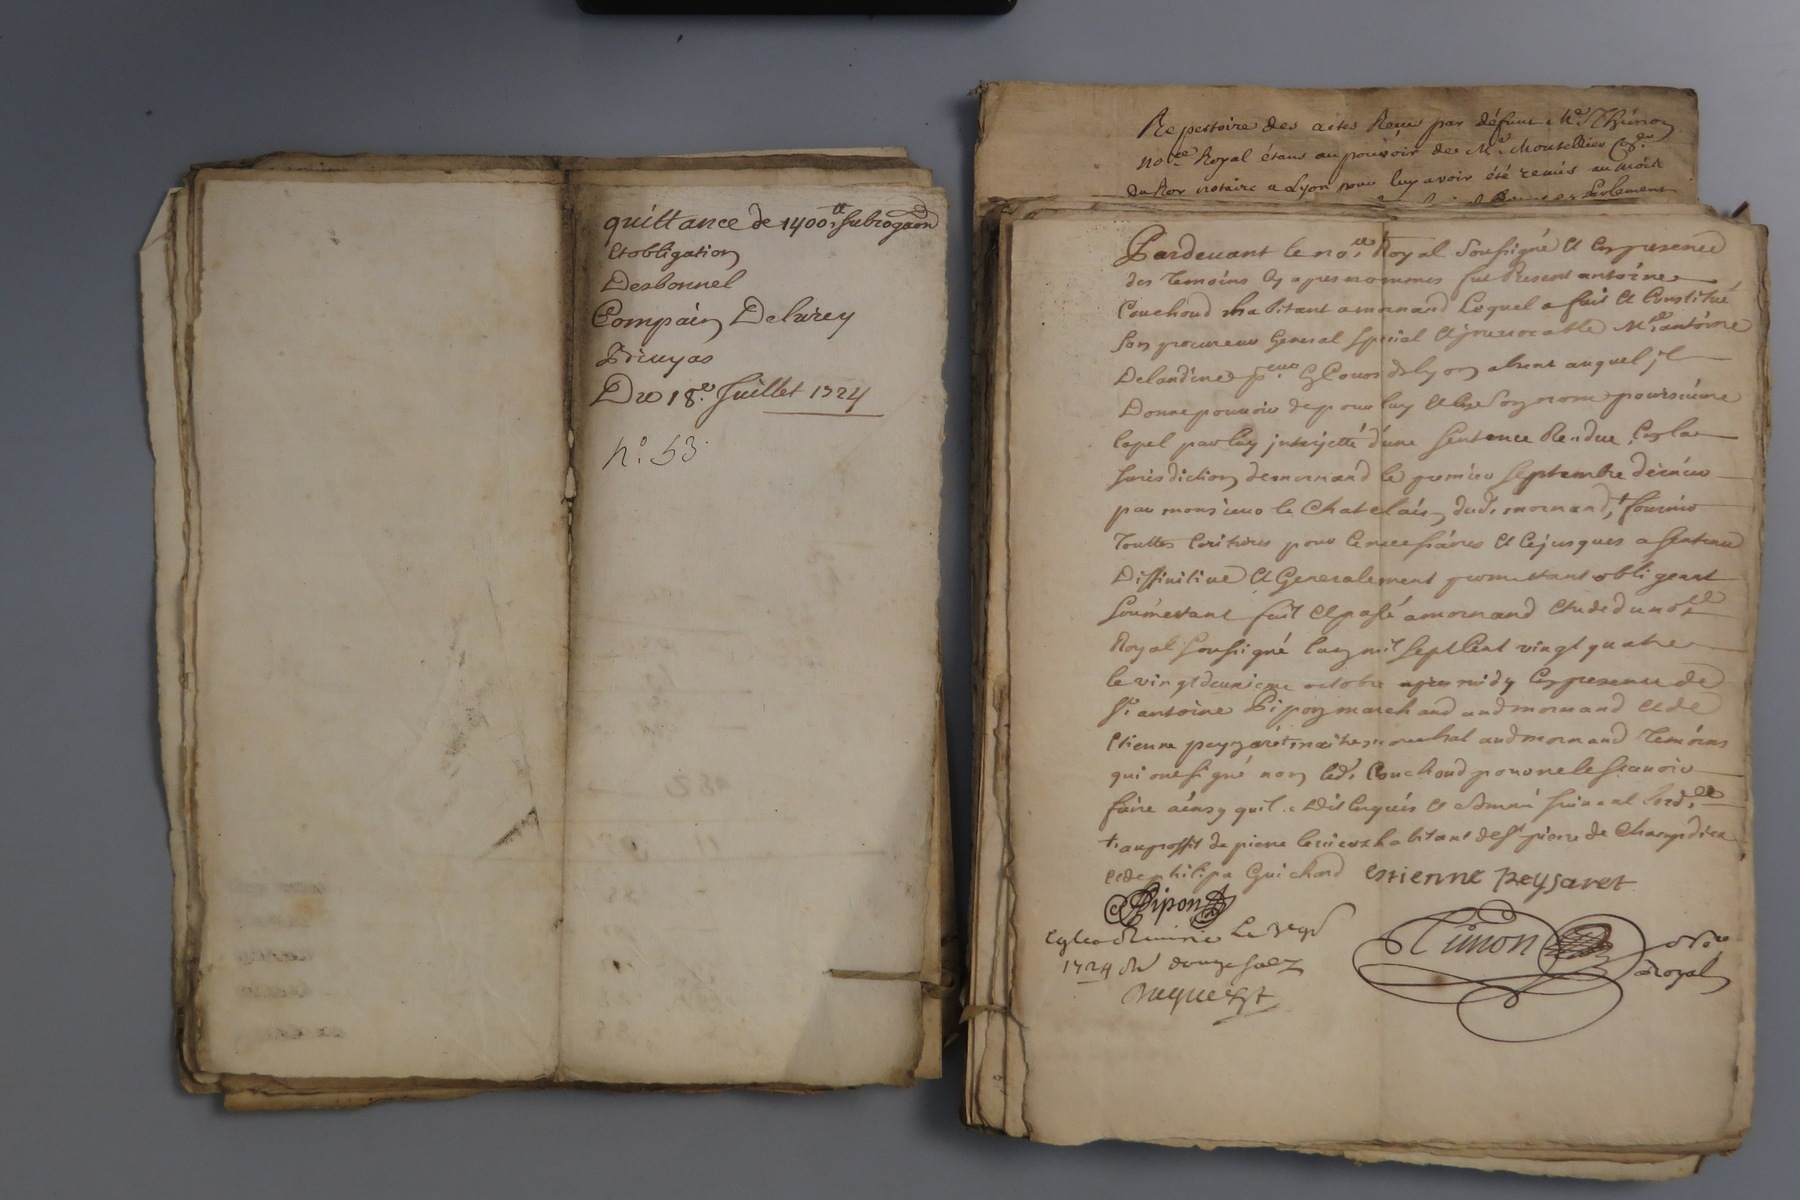 quittance de 1400# subrogaon
Et obligation
Desbonnel
Compain Delurey
Bruyas
Du 18e. Juillet 1724
n°. 53.
Repertoire des actes Reçus par défunt Me. Thimon
nore Royal étans au pouvoir de Me. Montellier Con.er
du Roy notaire a Lyon pour luy avoir été remis au mois
Parlement
Pardevant le nore. Royal soussigné Et En presence
des Temoins Cy apres nommes fut Present antoine
Couchoud habitant a mornand Lequel a fait Et Constitué
Son procureur General special Et irrevocable Me. antoine
Delandine pr.eur Es Cours de lyon absent auquel jl
Donne pouvoir de pour luy Et En Son nom poursuivre
Lapel par luy interjetté d'une Sentence Rendue En la
Jurisdiction de mornand le premier Septembre dernier
par monsieur le Chatelain dud. mornand, + fournir
Touttes Ecritures pour Ce necessaires Et Ce jusques a Sentence
Diffinitive Et Generalement promettant obligeant
Soumettant fait Et passé a mornand Etude du nore
Royal Soussigné L'an mil Sept Cent vingt quatre
le vingt deuxieme octobre apres midy En presence de
Sr. antoine Pipon marchand aud mornand Et de
Etienne peyzaret maitre marechal aud mornand Temoins
qui ont signé non led. Couchoud pour ne le Scavoir
faire ainsy quil a Dit Enquis Et Somme Suivant Lord.ce
+ au proffit de pierre habitant de St. pierre de Chandieu
Et de philipe Guichard Estienne Peysaret
Pipon
Thimon nore
Royal
1724 Rd douze solz